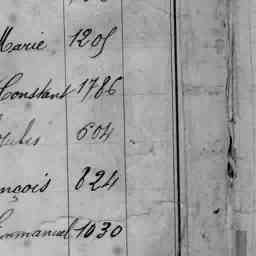 Marie 1205
Constant 1786
Jules 604
nçois 824
Emmanuel 1030